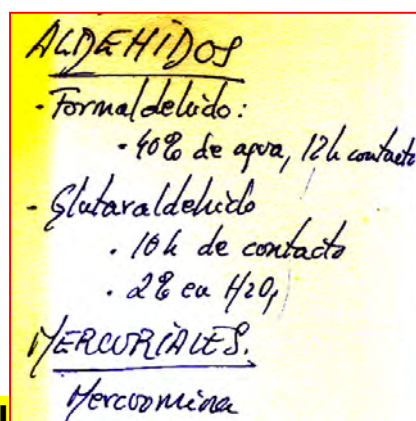 ALDEHIDOS
- Formaldehido:
· 40% de agua, 12h contacto
- Glutaraldehido
· 10h de contacto
· 2% en H2O,
MERCURIALES.
Mercromina